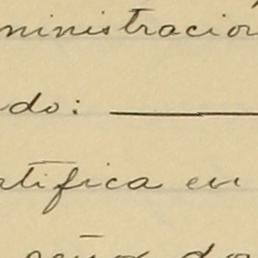 ministración
do: ———
tifica en